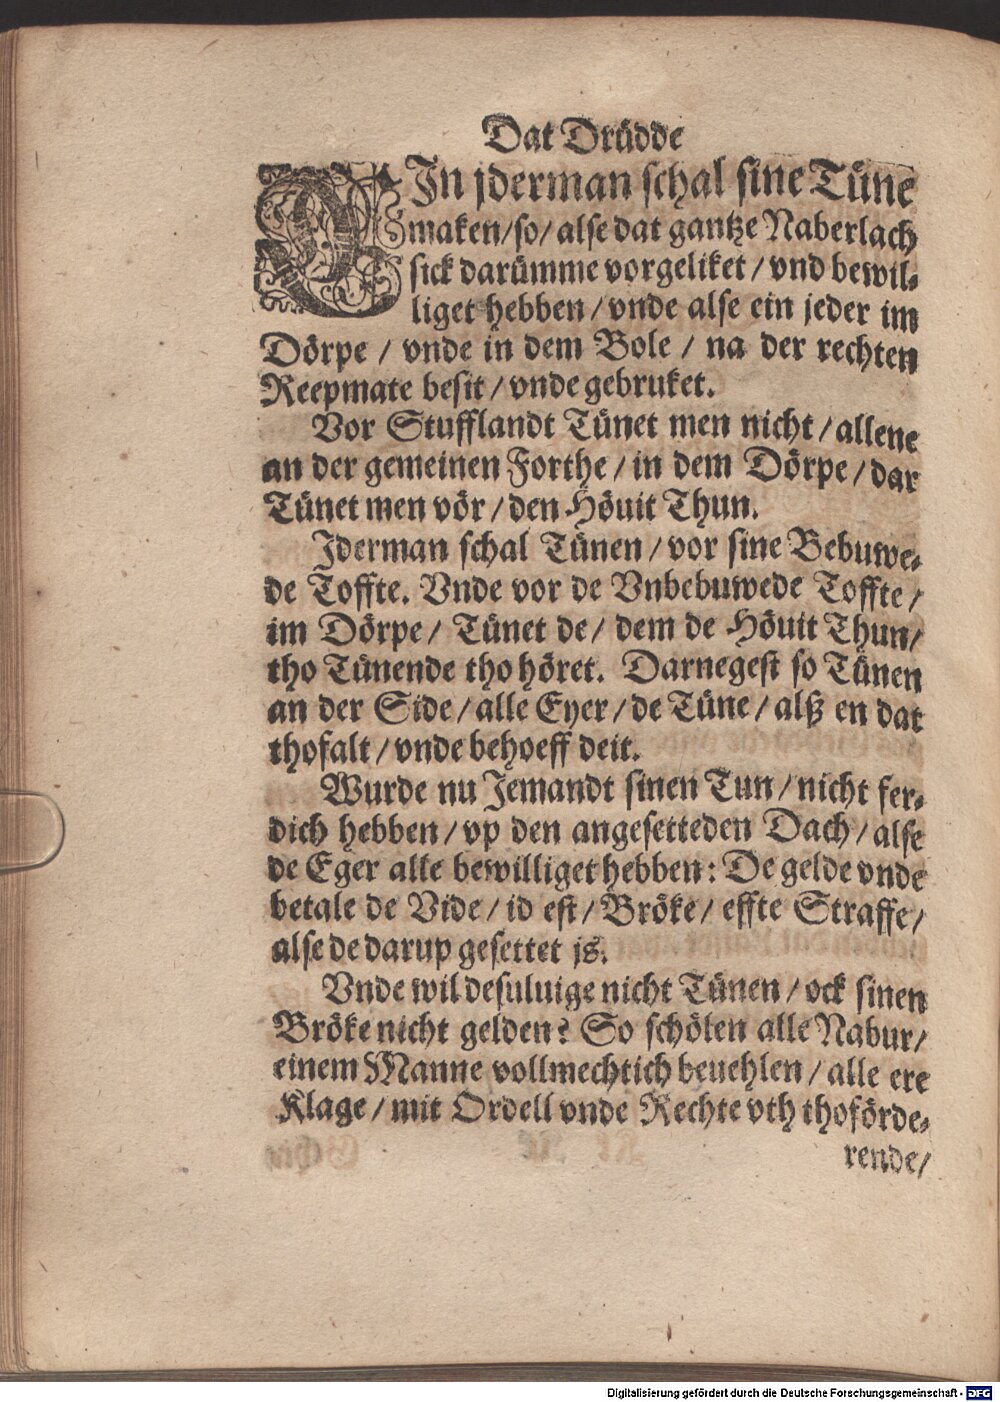 Dat Drüdde
EJn jderman schal sine Tüne
maken/so/ alse dat gantze Naberlach
sick darümme vorgeliket / vnd bewil-
liget hebben / vnde alse ein jeder im
Dörpe / vnde in dem Bole / na der rechten
Reepmate besit / vnde gebruket.
Vor Stufflandt Tünet men nicht / allene
an der gemeinen Forthe / in dem Dörpe / dar
Tünet men vör / den Höuit Thun.
Jderman schal Tünen / vor sine Bebuwe-
de Toffte. Vnde vor de Vnbebuwede Toffte /
im Dörpe / Tünet de / dem de Höuit Thun /
tho Tünende tho höret. Darnegest so Tünen
an der Side / alle Eyer / de Tüne / alß en dat
thofalt / vnde behoeff deit.
Wurde nu Jemandt sinen Tun / nicht fer-
dich hebben / vp den angesetteden Dach / alse
de Eger alle bewilliget hebben: De gelde vnde
betale de Vide / id est / Bröke / effte Straffe /
alse de darup gesettet js.
Vnde wil desuluige nicht Tünen / ock sinen
Bröke nicht gelden? So schölen alle Nabur /
einem Manne vollmechtich beuehlen / alle ere
Klage / mit Ordell vnde Rechte vth thoförde-
rende /
Digitalisierung gefördert durch die Deutsche Forschungsgemeinschaft - DFG